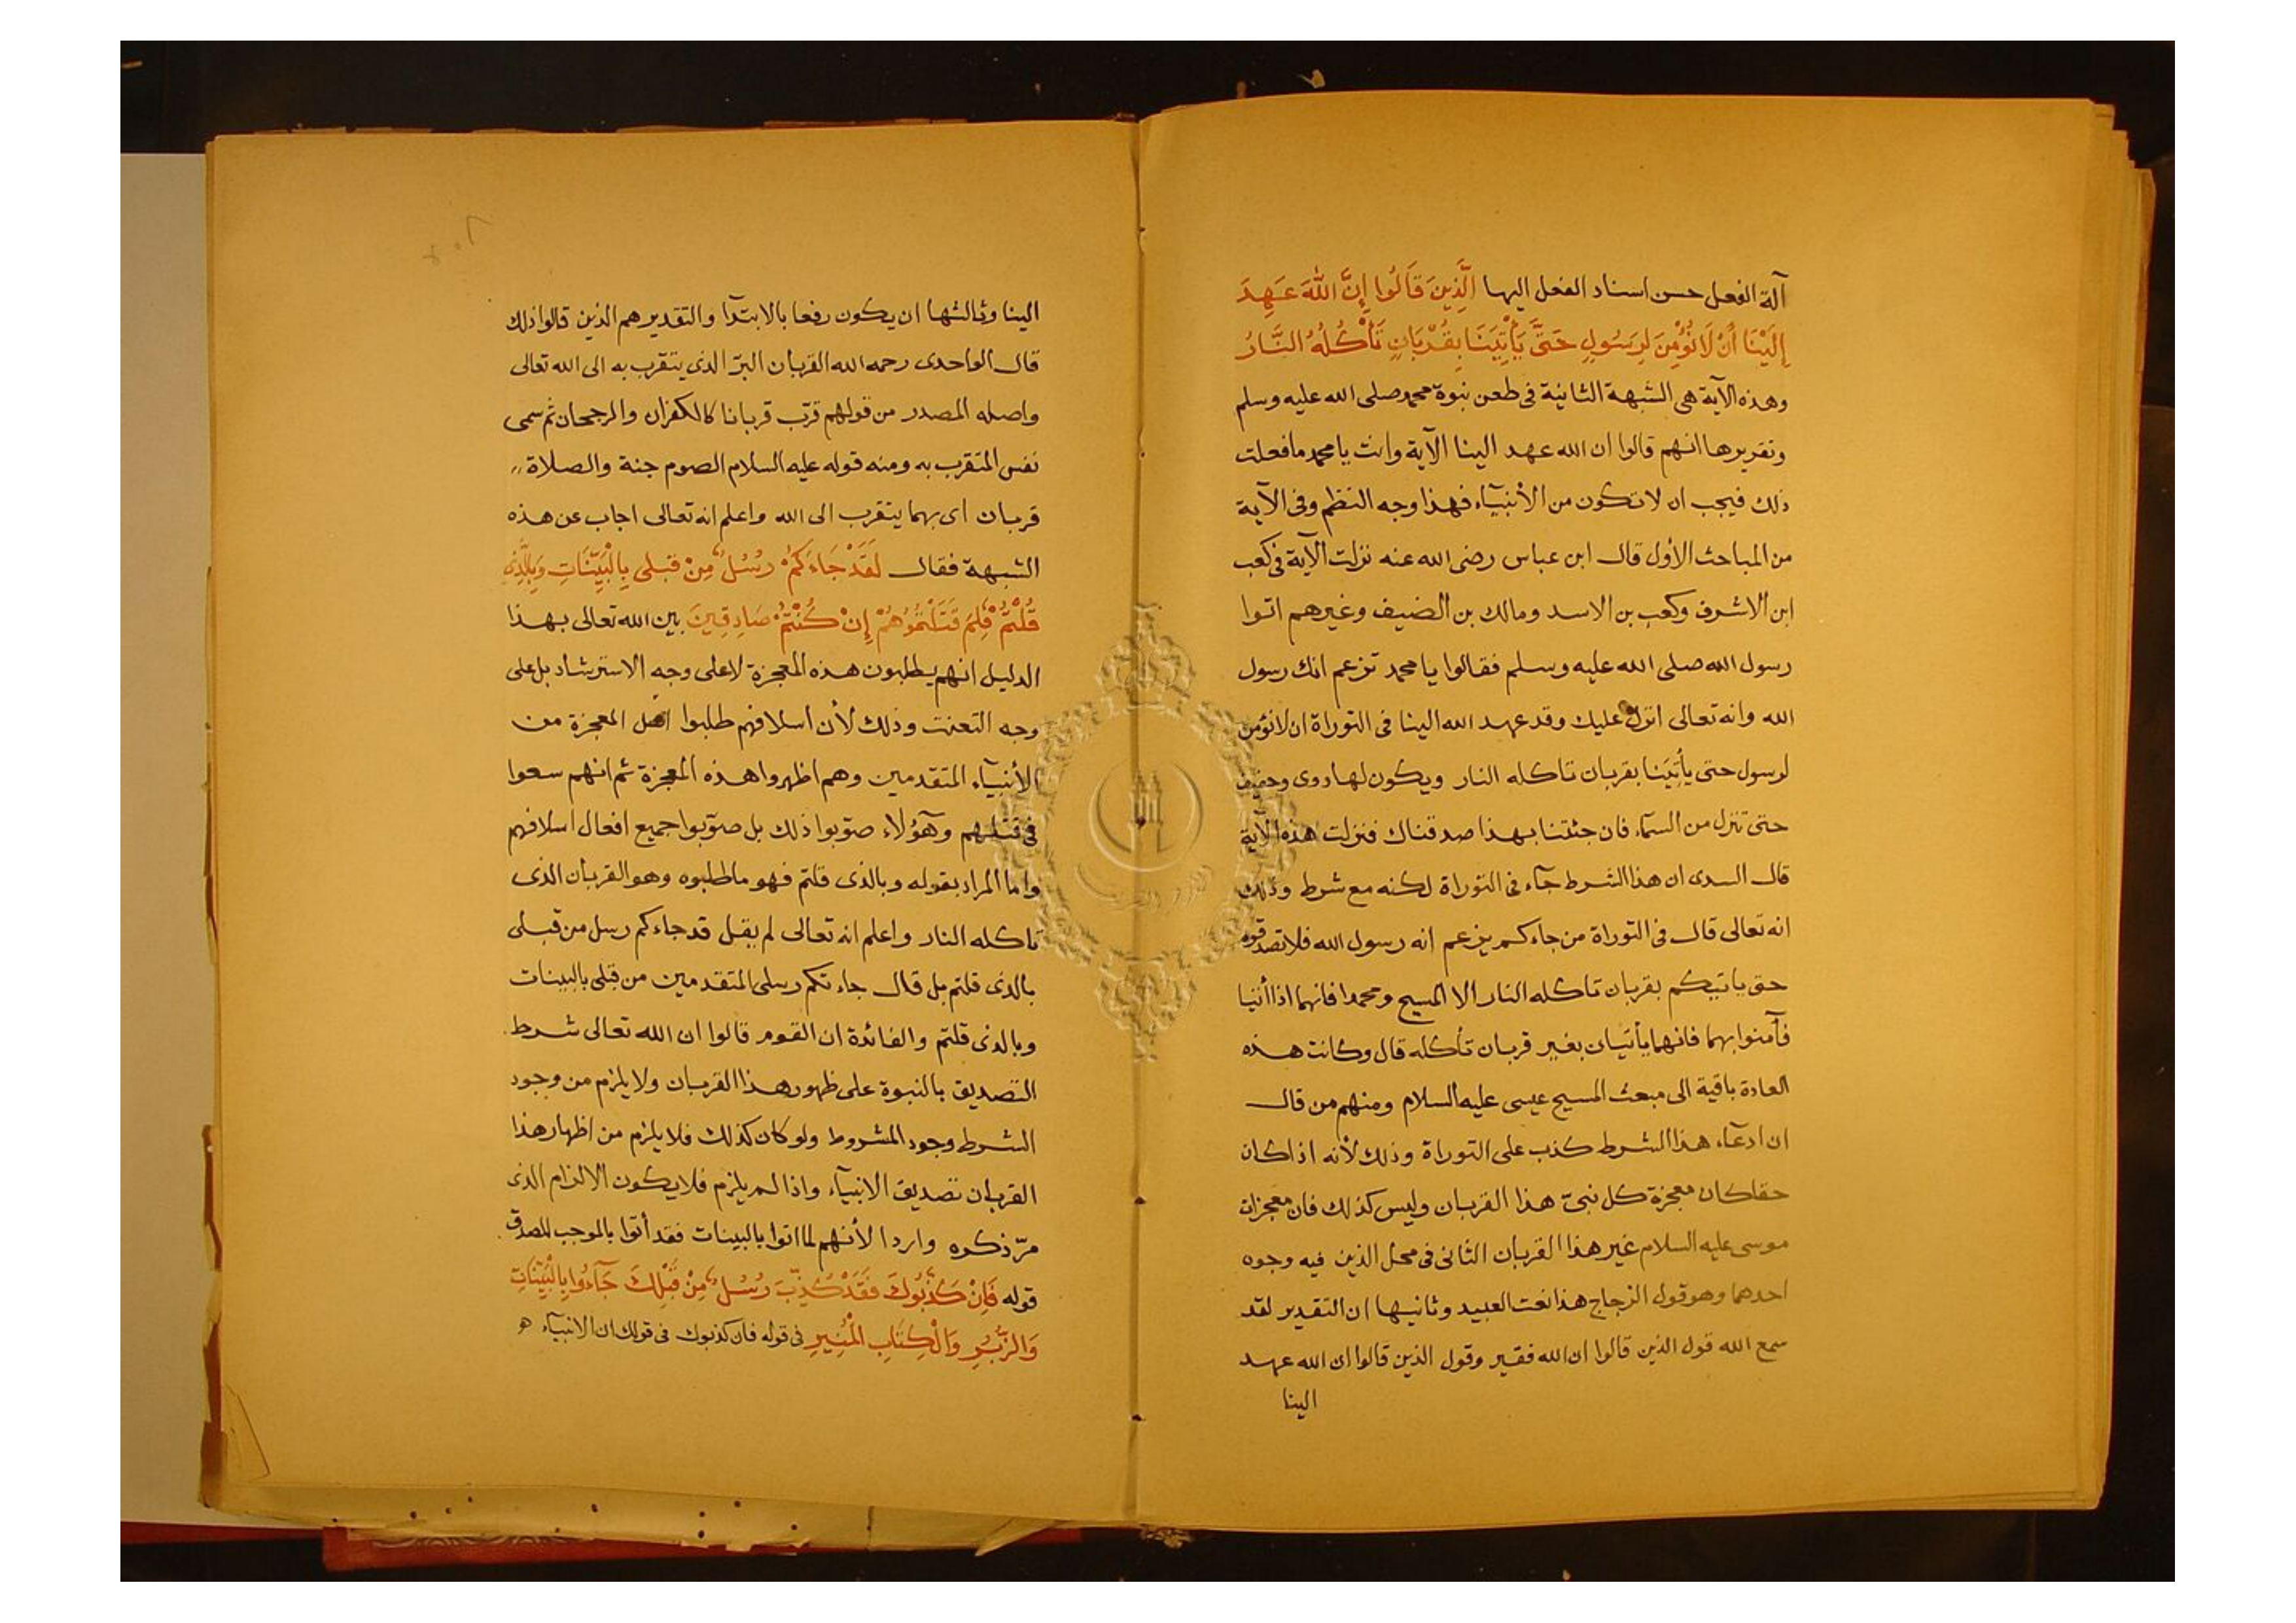 آلة الفعل حسن اسناد الفعل اليها الَّذِينَ قَالُوا إِنَّ اللَّهَ عَهِدَ
إِلَيْنَا أَنْ لَا نُؤْمِنَ لِرَسُولٍ حَتَّى يَأْتِيَنَا بِقُرْبَانٍ تَأْكُلُهُ النَّارُ
وهذه الآية هى الشبهة الثانية فى طعن نبوة محمد صلى الله عليه وسلم
وتقريرها انهم قالوا ان الله عهد الينا الآية وانت يا محمد ما فعلت
ذلك فيجب ان لا تكون من الأنبيآء فهذا وجه النظم وفى الآية
من المباحث الأول قال ابن عباس رضى الله عنه نزلت الآية فى كعب
ابن الاشرف وكعب بن الاسد ومالك بن الضيف وغيرهم اتوا
رسول الله صلى الله عليه وسلم فقالوا يا محمد تزعم انك رسول
الله وانه تعالى انزل عليك وقد عهد الله الينا فى التوراة ان لا نؤمن
لرسول حتى يأتينا بقربان تاكله النار ويكون لها دوى وحفيف
حتى تنزل من السمآء فان جئتنا بهذا صدقناك فنزلت هذه الآية
قال السدى ان هذا الشرط جآء فى التوراة لكنه مع شرط وذلك
انه تعالى قال فى التوراة من جاءكم يزعم انه رسول الله فلا تصدقوه
حتى ياتيكم بقربان تاكله النار الا المسيح ومحمدا فانهما اذا أتيا
فآمنوا بهما فانهما يأتيان بغير قربان تأكله قال وكانت هذه
العادة باقية الى مبعث المسيح عيسى عليه السلام ومنهم من قال
ان ادعآء هذا الشرط كذب على التوراة وذلك لأنه اذا كان
حقا كان معجزة كل نبىّ هذا القربان وليس كذلك فان معجزات
موسى عليه السلام غير هذا القربان الثانى فى محل الذين فيه وجوه
احدهما وهو قول الزجاج هذا نعت العبيد وثانيها ان التقدير لقد
سمع الله قول الذين قالوا ان الله فقير وقول الذين قالوا ان الله عهد
الينا
الينا وثالثها ان يكون رفعا بالابتدآ والتقدير هم الذين قالوا ذلك
قال الواحدى رحمه الله القربان البرّ الذى يتقرب به الى الله تعالى
واصله المصدر من قولهم قرّب قربانا كالكفران والرجحان ثم سمى
نفس المتقرب به ومنه قوله عليه السلام الصوم جنة والصلاة
قربان اى بهما يتقرب الى الله واعلم انه تعالى اجاب عن هذه
الشبهة فقال لَقَدْ جَاءَكُمْ رُسُلٌ مِنْ قَبلى بِالْبَيِّنَاتِ وَبِالَّذِى
قُلْتُمْ فَلِمَ قَتَلْتُمُوهُمْ إِنْ كُنْتُمْ صَادِقِينَ بين الله تعالى بهذا
الدليل انهم يطلبون هذه المعجزة لا على وجه الاسترشاد بل على
وجه التعنت وذلك لأن اسلافهم طلبوا المعجزة من
الأنبيآء المتقدمين وهم اظهروا هذه المعجزة ثم انهم سعوا
فى قتلهم وهؤلاء صوّبوا ذلك بل صوّبوا جميع افعال اسلافهم
واما المراد بقوله وبالذى قلتم فهو ما طلبوه وهو القربان الذى
تاكله النار واعلم انه تعالى لم يقل قد جاءكم رسل من قبلى
بالذى قلتم بل قال جاءتكم رسلى المتقدمين من قبلى بالبينات
وبالذى قلتم والفائدة ان القوم قالوا ان الله تعالى شرط
التصديق بالنبوة على ظهور هذا القربان ولا يلزم من وجود
الشرط وجود المشروط ولو كان كذلك فلا يلزم من اظهار هذا
القربان تصديق الانبيآء واذا لم يلزم فلا يكون الالزام الذى
مرّ ذكره واردا لأنهم لما اتوا بالبينات فقد أتوا بالموجب للصدق
قوله فَإِنْ كَذَّبُوكَ فَقَدْ كُذِّبَ رُسُلٌ مِنْ قَبْلِكَ جَآءُوا بِالْبَيِّنَاتِ
وَالزُّبُرِ وَالْكِتَابِ الْمُنِيرِ فى قوله فان كذبوك فى قولك ان الانبيآء